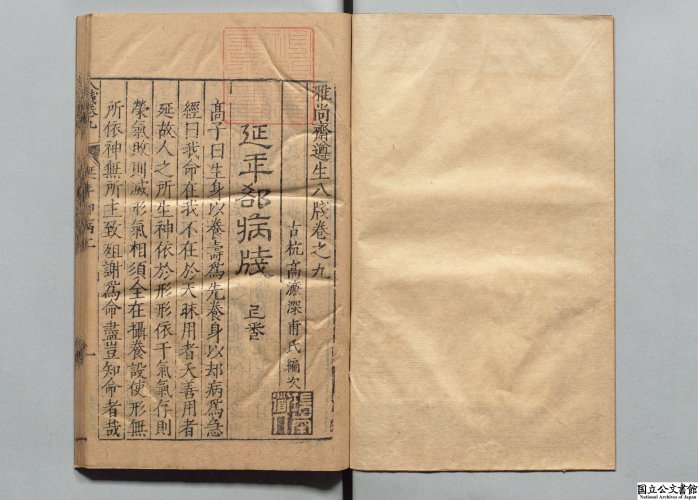 雅尚齋遵生八牋卷之九
古杭高濂深甫氏編次
延年郤病牋
高子曰生身以養壽爲先養身以却病爲急
經曰我命在我不在於天昧用者夭善用者
延故人之所生神依於形形依于氣氣存則
榮氣敗則滅形氣相須全在攝養設使形無
所依神無所主致殂謝爲命盡豈知命者哉
延年却病
一
国立公文書館
National Archives of Japan